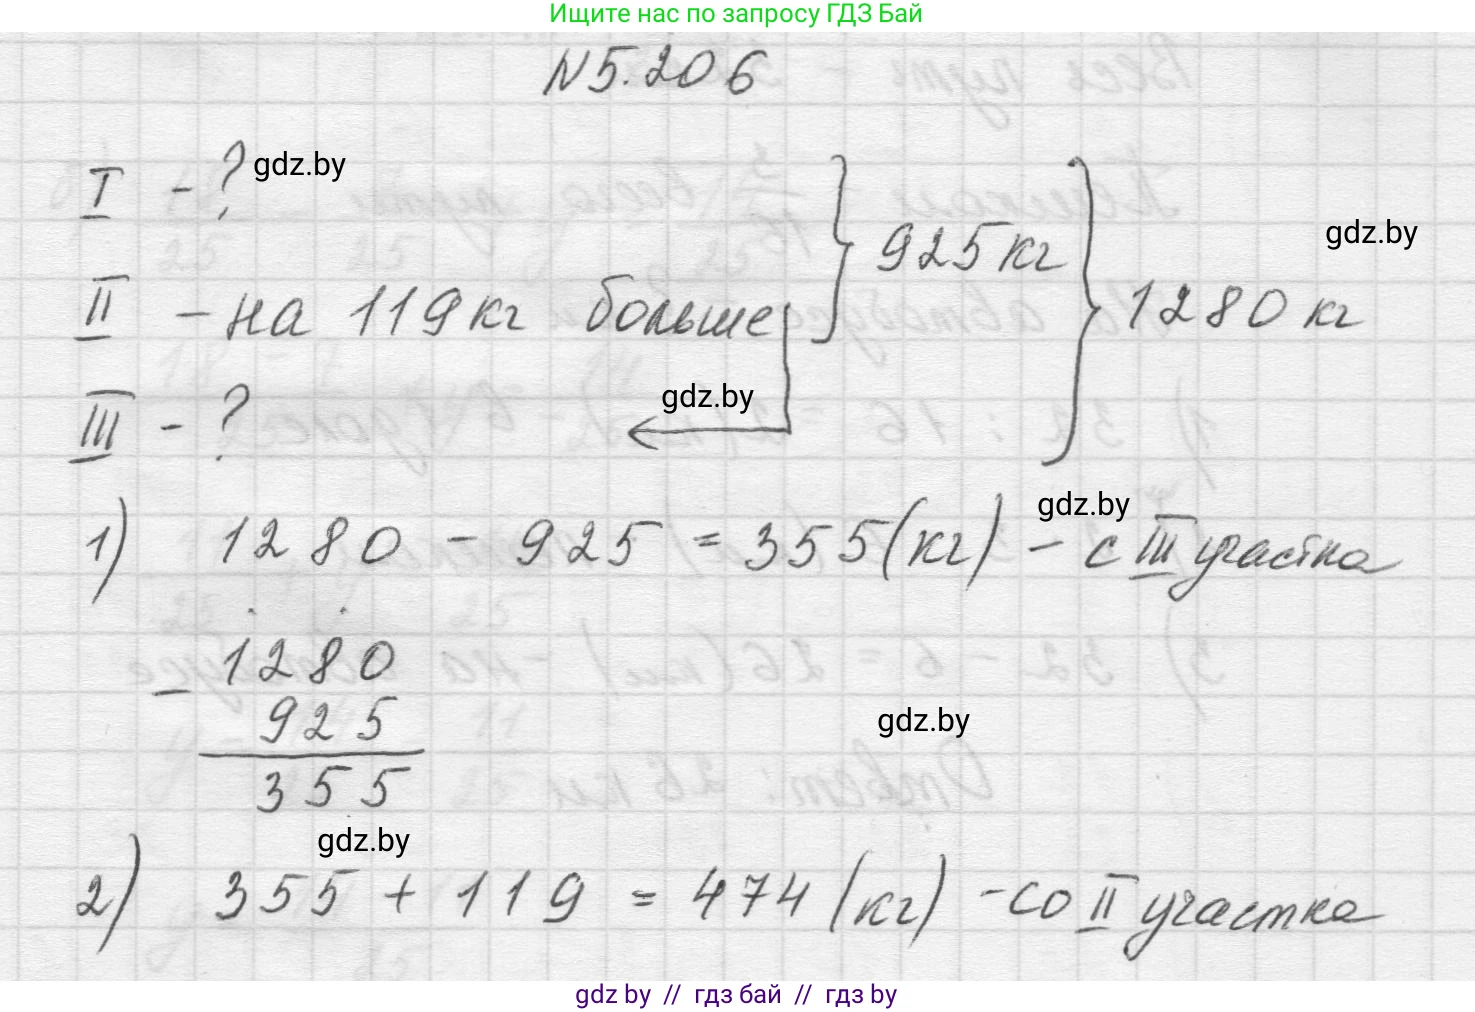 Ищите нас по запросу ГДЗ Бай
N5.206
I - ? gdz.by
925 кг
gdz.by
II - на 119 кг больше
1280 кг
gdz.by
III - ?
gdz.by
1) 1280 - 925 = 355 (кг) - с III участка
- 1280
925
gdz.by
355
gdz.by
2) 355 + 119 = 474 (кг) - со II участка
gdz by // гдз бай // гдз by